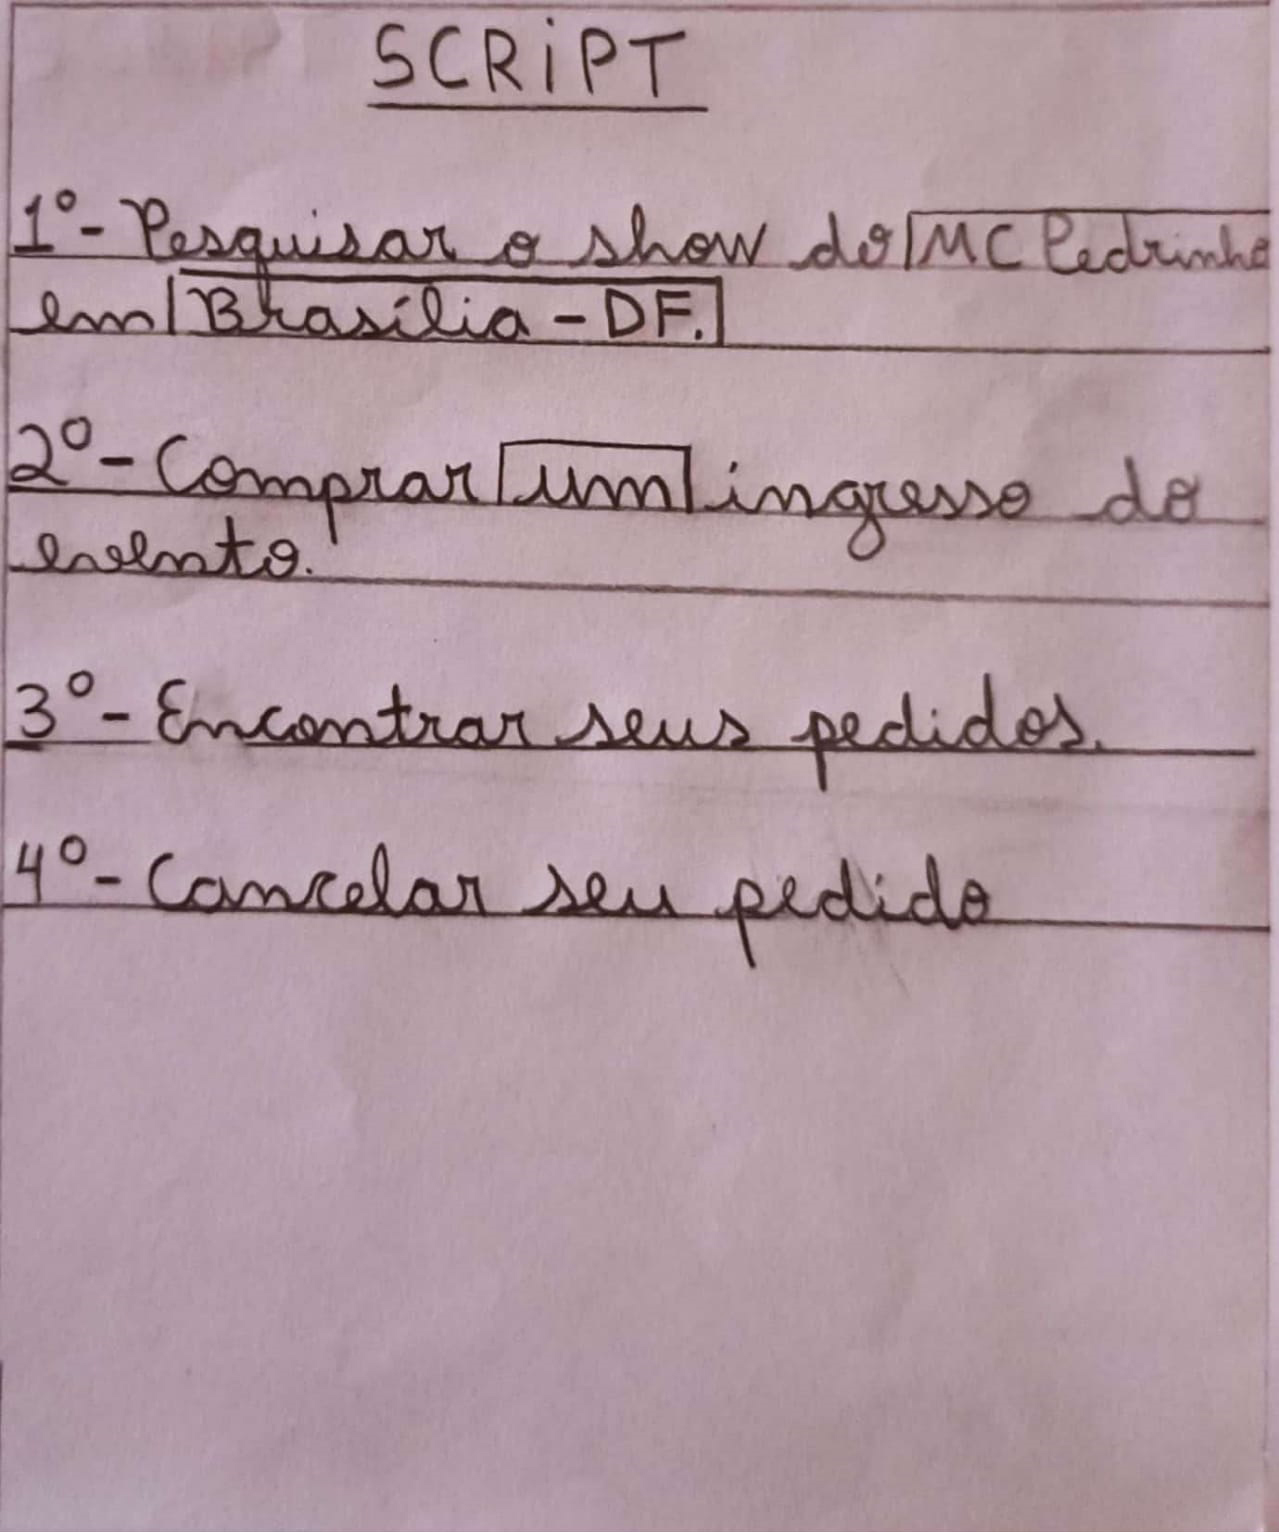 SCRIPT
1º- Pesquisar o show do MC Pedrinho
em Brasília - DF.
2º- Comprar um ingresso do
evento.
3º- Encontrar seus pedidos.
4º- Cancelar seu pedido